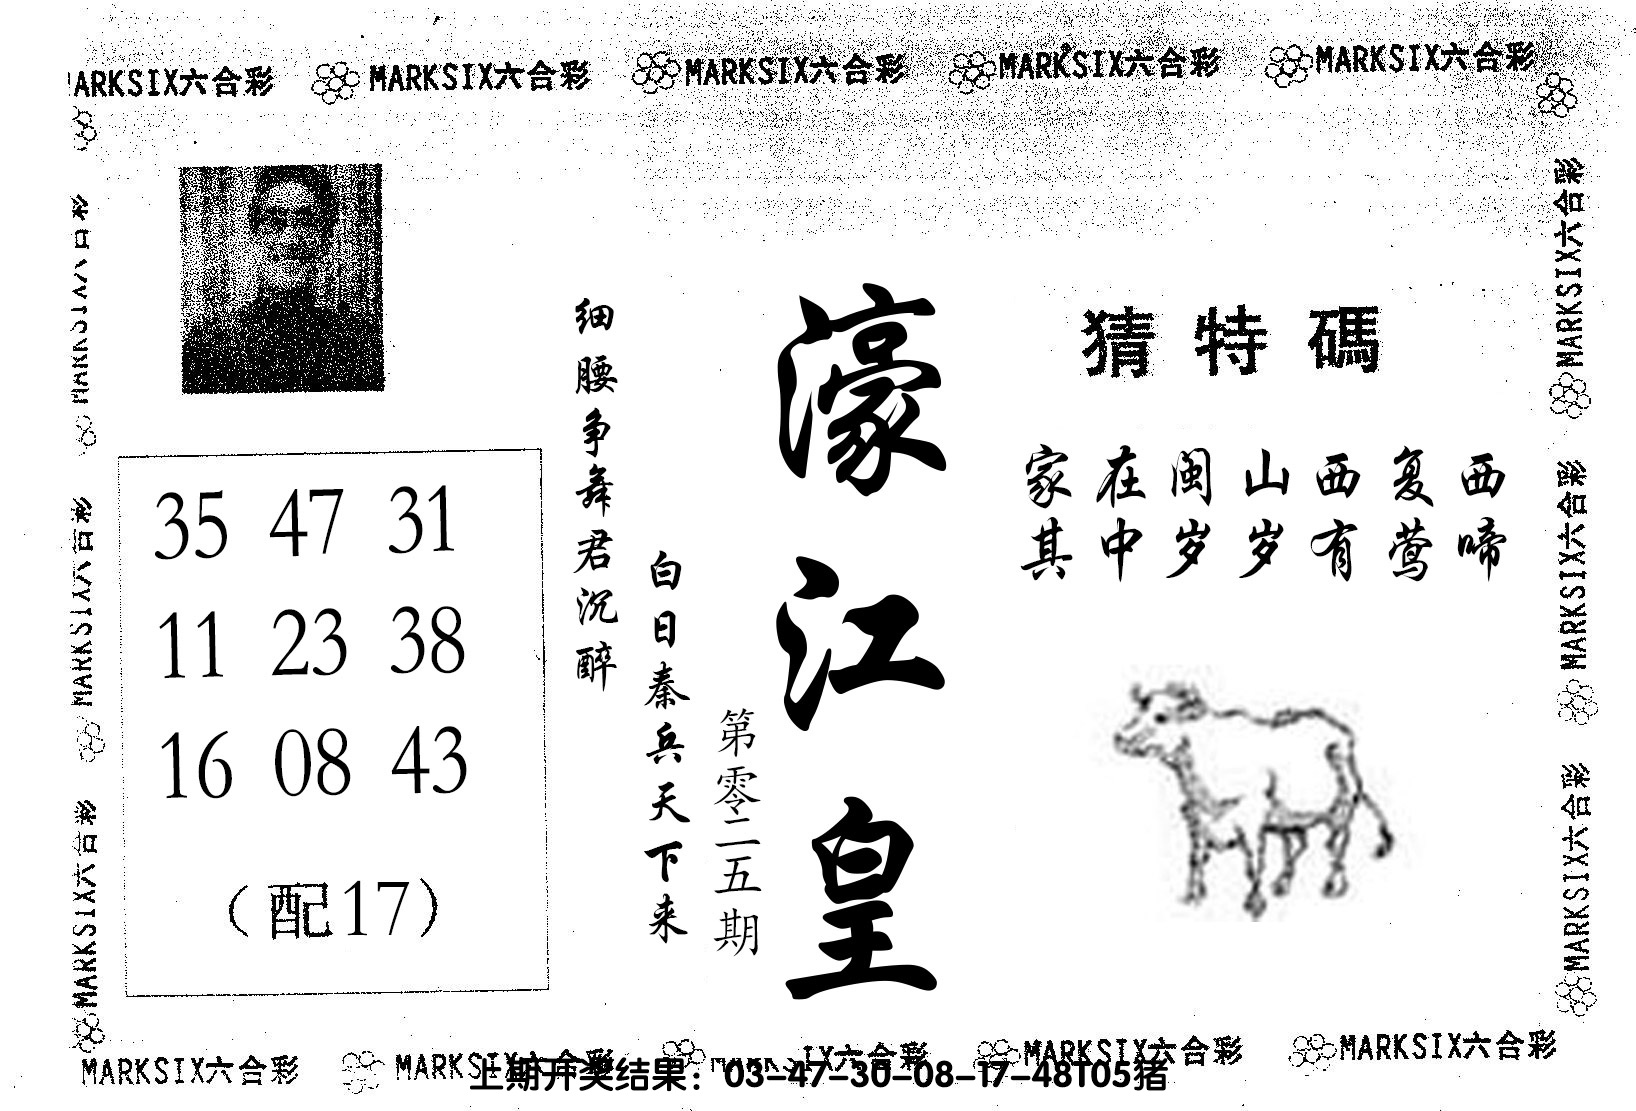 MARKSIX六合彩 MARKSIX六合彩 MARKSIX六合彩 MARKSIX六合彩 MARKSIX六合彩
猜特碼
家在闽山西复西
其中岁岁有莺啼
濠江皇
第零二五期
白日秦兵天下来
细腰争舞君沉醉
35 47 31
11 23 38
16 08 43
（配17）
MARKSIX六合彩
MARKSIX六合彩
MARKSIX六合彩
MARKSIX六合彩
MARKSIX六合彩
MARKSIX六合彩
MARKSIX六合彩 MARKSIX六合彩 MARKSIX六合彩 MARKSIX六合彩
上期开奖结果：03-47-30-08-17-48T05猪